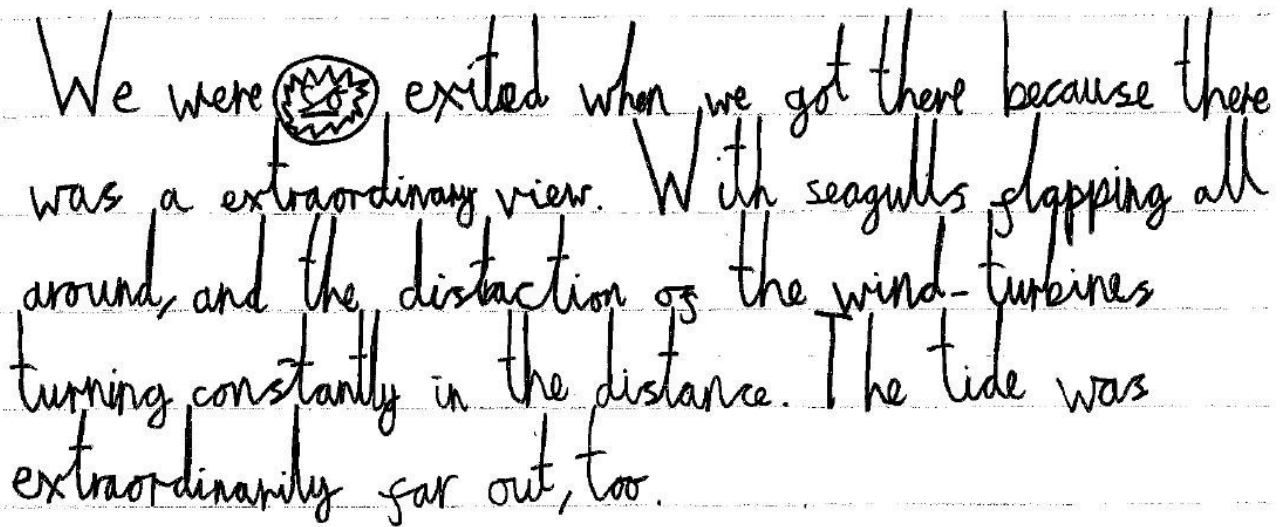 We were so exited when we got there because there
was a extraordinary view. With seagulls flapping all
around, and the distaction of the wind-turbines
turning constantly in the distance. The tide was
extraordinarily far out, too.